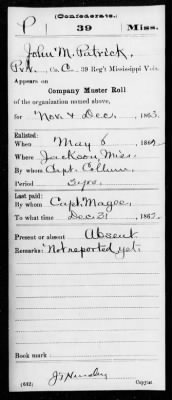 (Confederate.)
P 39 Miss.
John M. Patrick,
Pvt., Co. C., 39 Reg't Mississippi Vols.
Appears on
Company Muster Roll
of the organization named above,
for Nov. & Dec., 1863.
Enlisted:
When May 6, 1862.
Where Jackson, Miss.
By whom Capt. Collum,
Period 3 yrs.
Last paid:
By whom Capt. Magee,
To what time Dec. 31, 1862.
Present or absent Absent
Remarks: Not reported yet.
Book mark:
(642) Copyist.